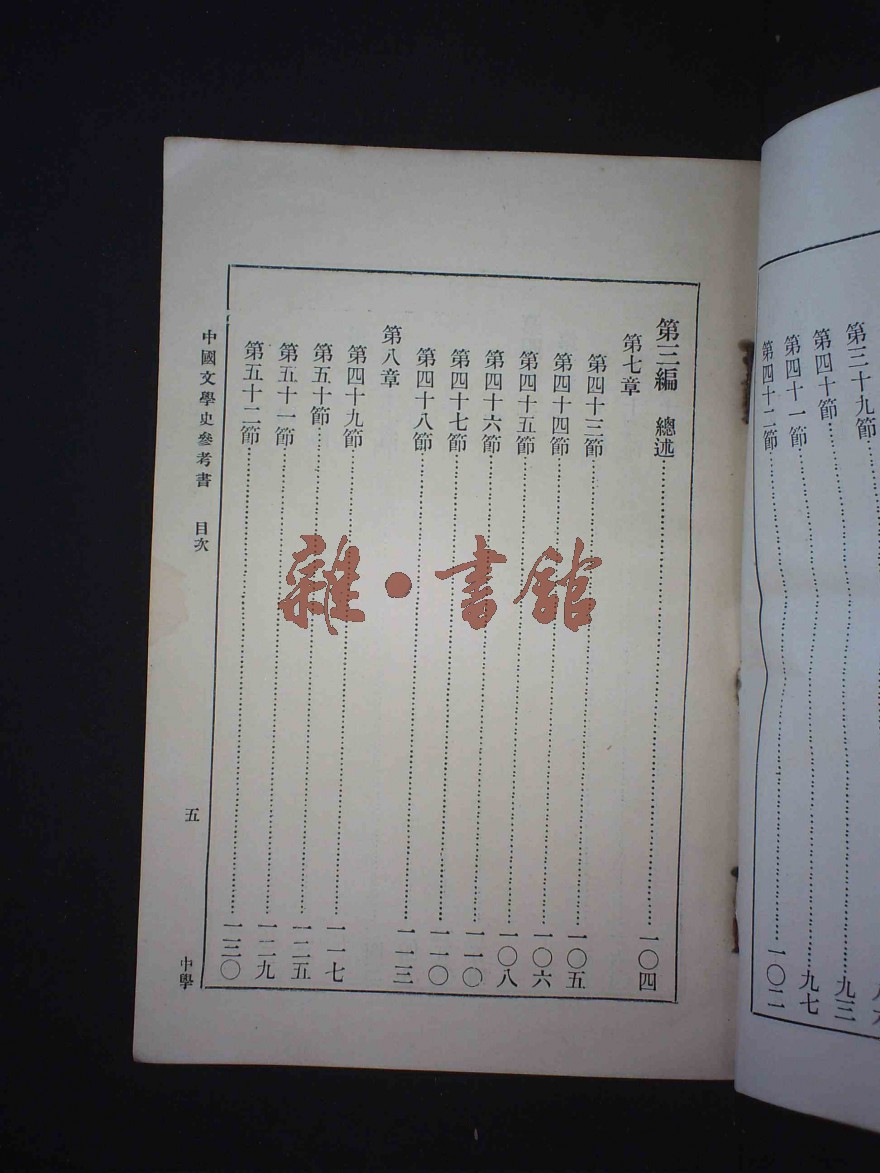 第三十九節
第四十節……九三
第四十一節……九七
第四十二節……一〇二
第三編 總述……一〇四
第七章
第四十三節……一〇五
第四十四節……一〇六
第四十五節……一〇八
第四十六節……一一〇
第四十七節……一一〇
第四十八節……一一三
第八章
第四十九節……一一七
第五十節……一二五
第五十一節……一二九
第五十二節……一三〇
中國文學史參考書 目次
五
中學
雜·書館